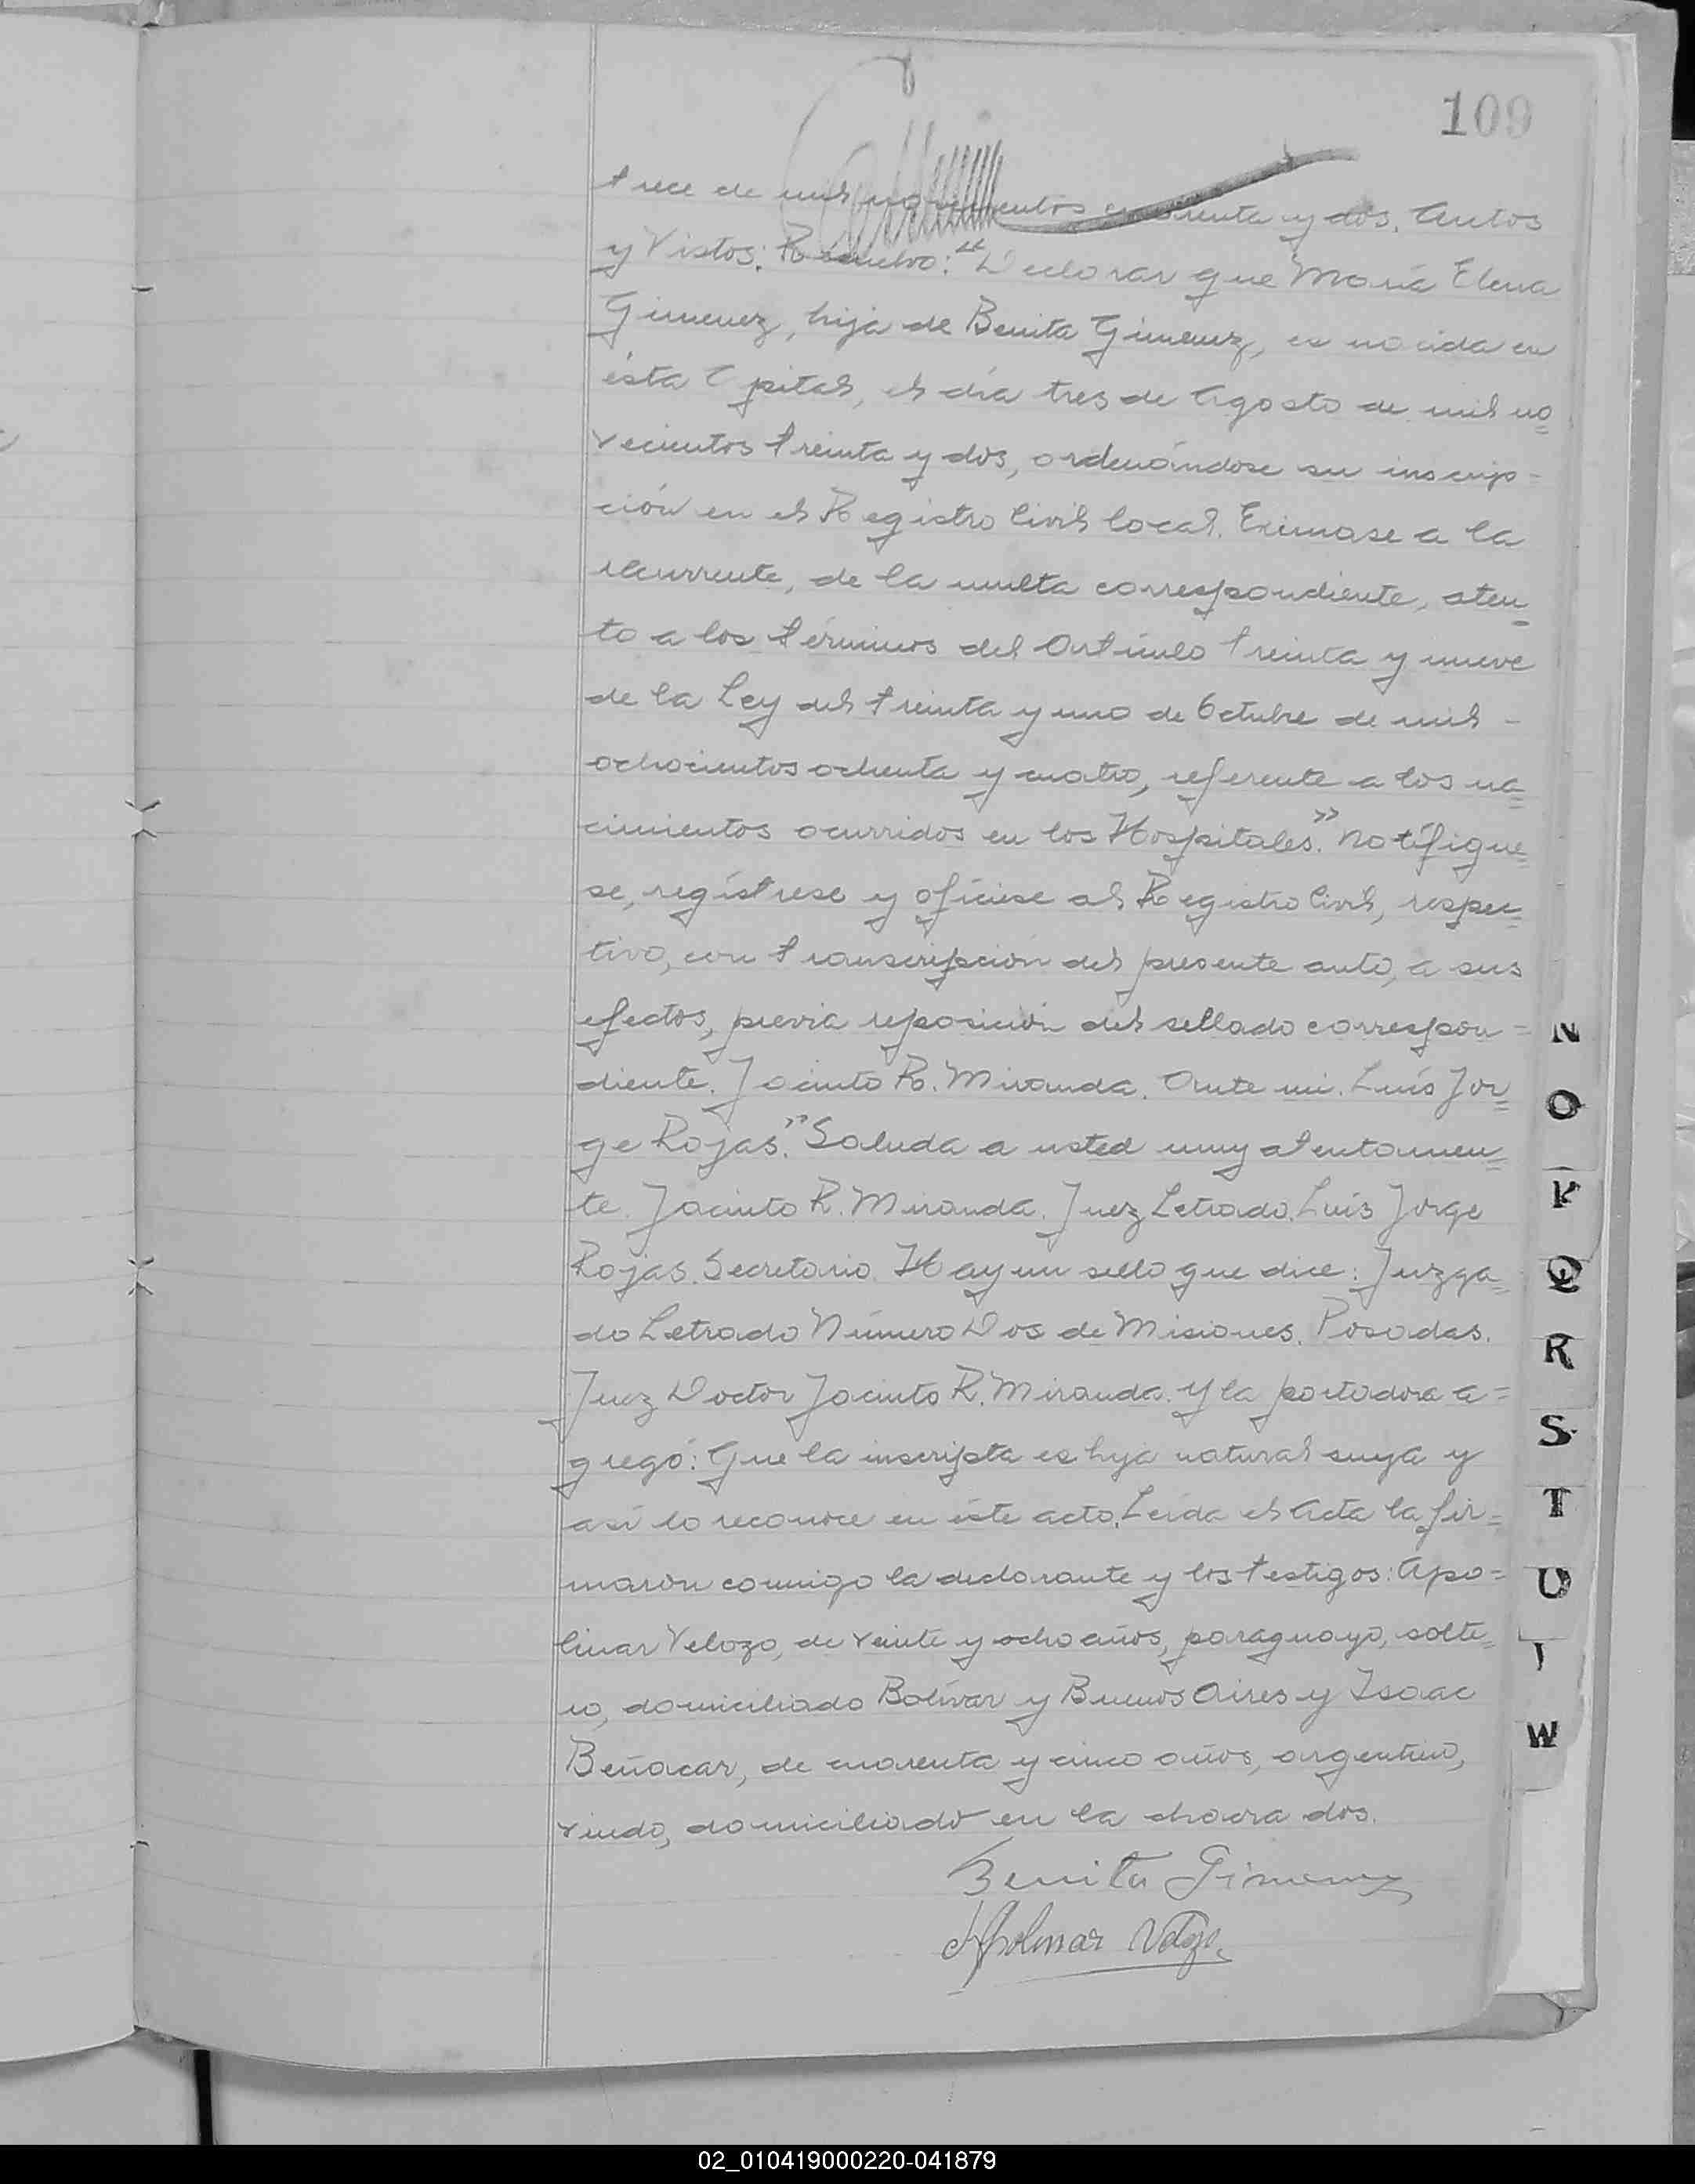 109
trece de mil novecientos cuarenta y dos. Autos
y Vistos: Resuelvo: "Declarar que María Elena
Gimenez, hija de Benita Gimenez, es nacida en
ésta C pital, el día tres de Agosto de mil no=
vecientos treinta y dos, ordenándose su inscrip-
ción en el Registro Civil local. Exímase a la
recurrente, de la multa correspondiente, aten=
to a los términos del Artículo treinta y nueve
de la Ley del treinta y uno de Octubre de mil -
ochocientos ochenta y cuatro, referente a los na=
cimientos ocurridos en los Hospitales." Notifíque=
se, regístrese y ofíciese al Registro Civil, respec=
tivo, con transcripción del presente auto, a sus
efectos, previa reposición del sellado correspon=
diente. Jacinto R. Miranda. Ante mi. Luís Jor=
ge Rojas." Saluda a usted muy atentamen=
te. Jacinto R. Miranda. Juez Letrado. Luís Jorge
Rojas. Secretario. Hay un sello que dice: Juzga=
do Letrado Número Dos de Misiones. Posadas.
Juez Doctor Jacinto R. Miranda. Y la portadora a=
gregó: Que la inscripta es hija natural suya y
así lo reconoce en éste acto. Leída el Acta la fir=
maron conmigo la declarante y los testigos: Apo=
linar Velozo, de veinte y ocho años, paraguayo, solte=
ro, domiciliado Bolívar y Buenos Aires y Isaac
Beñacar, de cuarenta y cinco años, argentino,
viudo, domiciliado en la chacra dos.
Benita Gimenez
Apolinar Velozo
N
O
P
Q
R
S
T
U
W
02_010419000220-041879